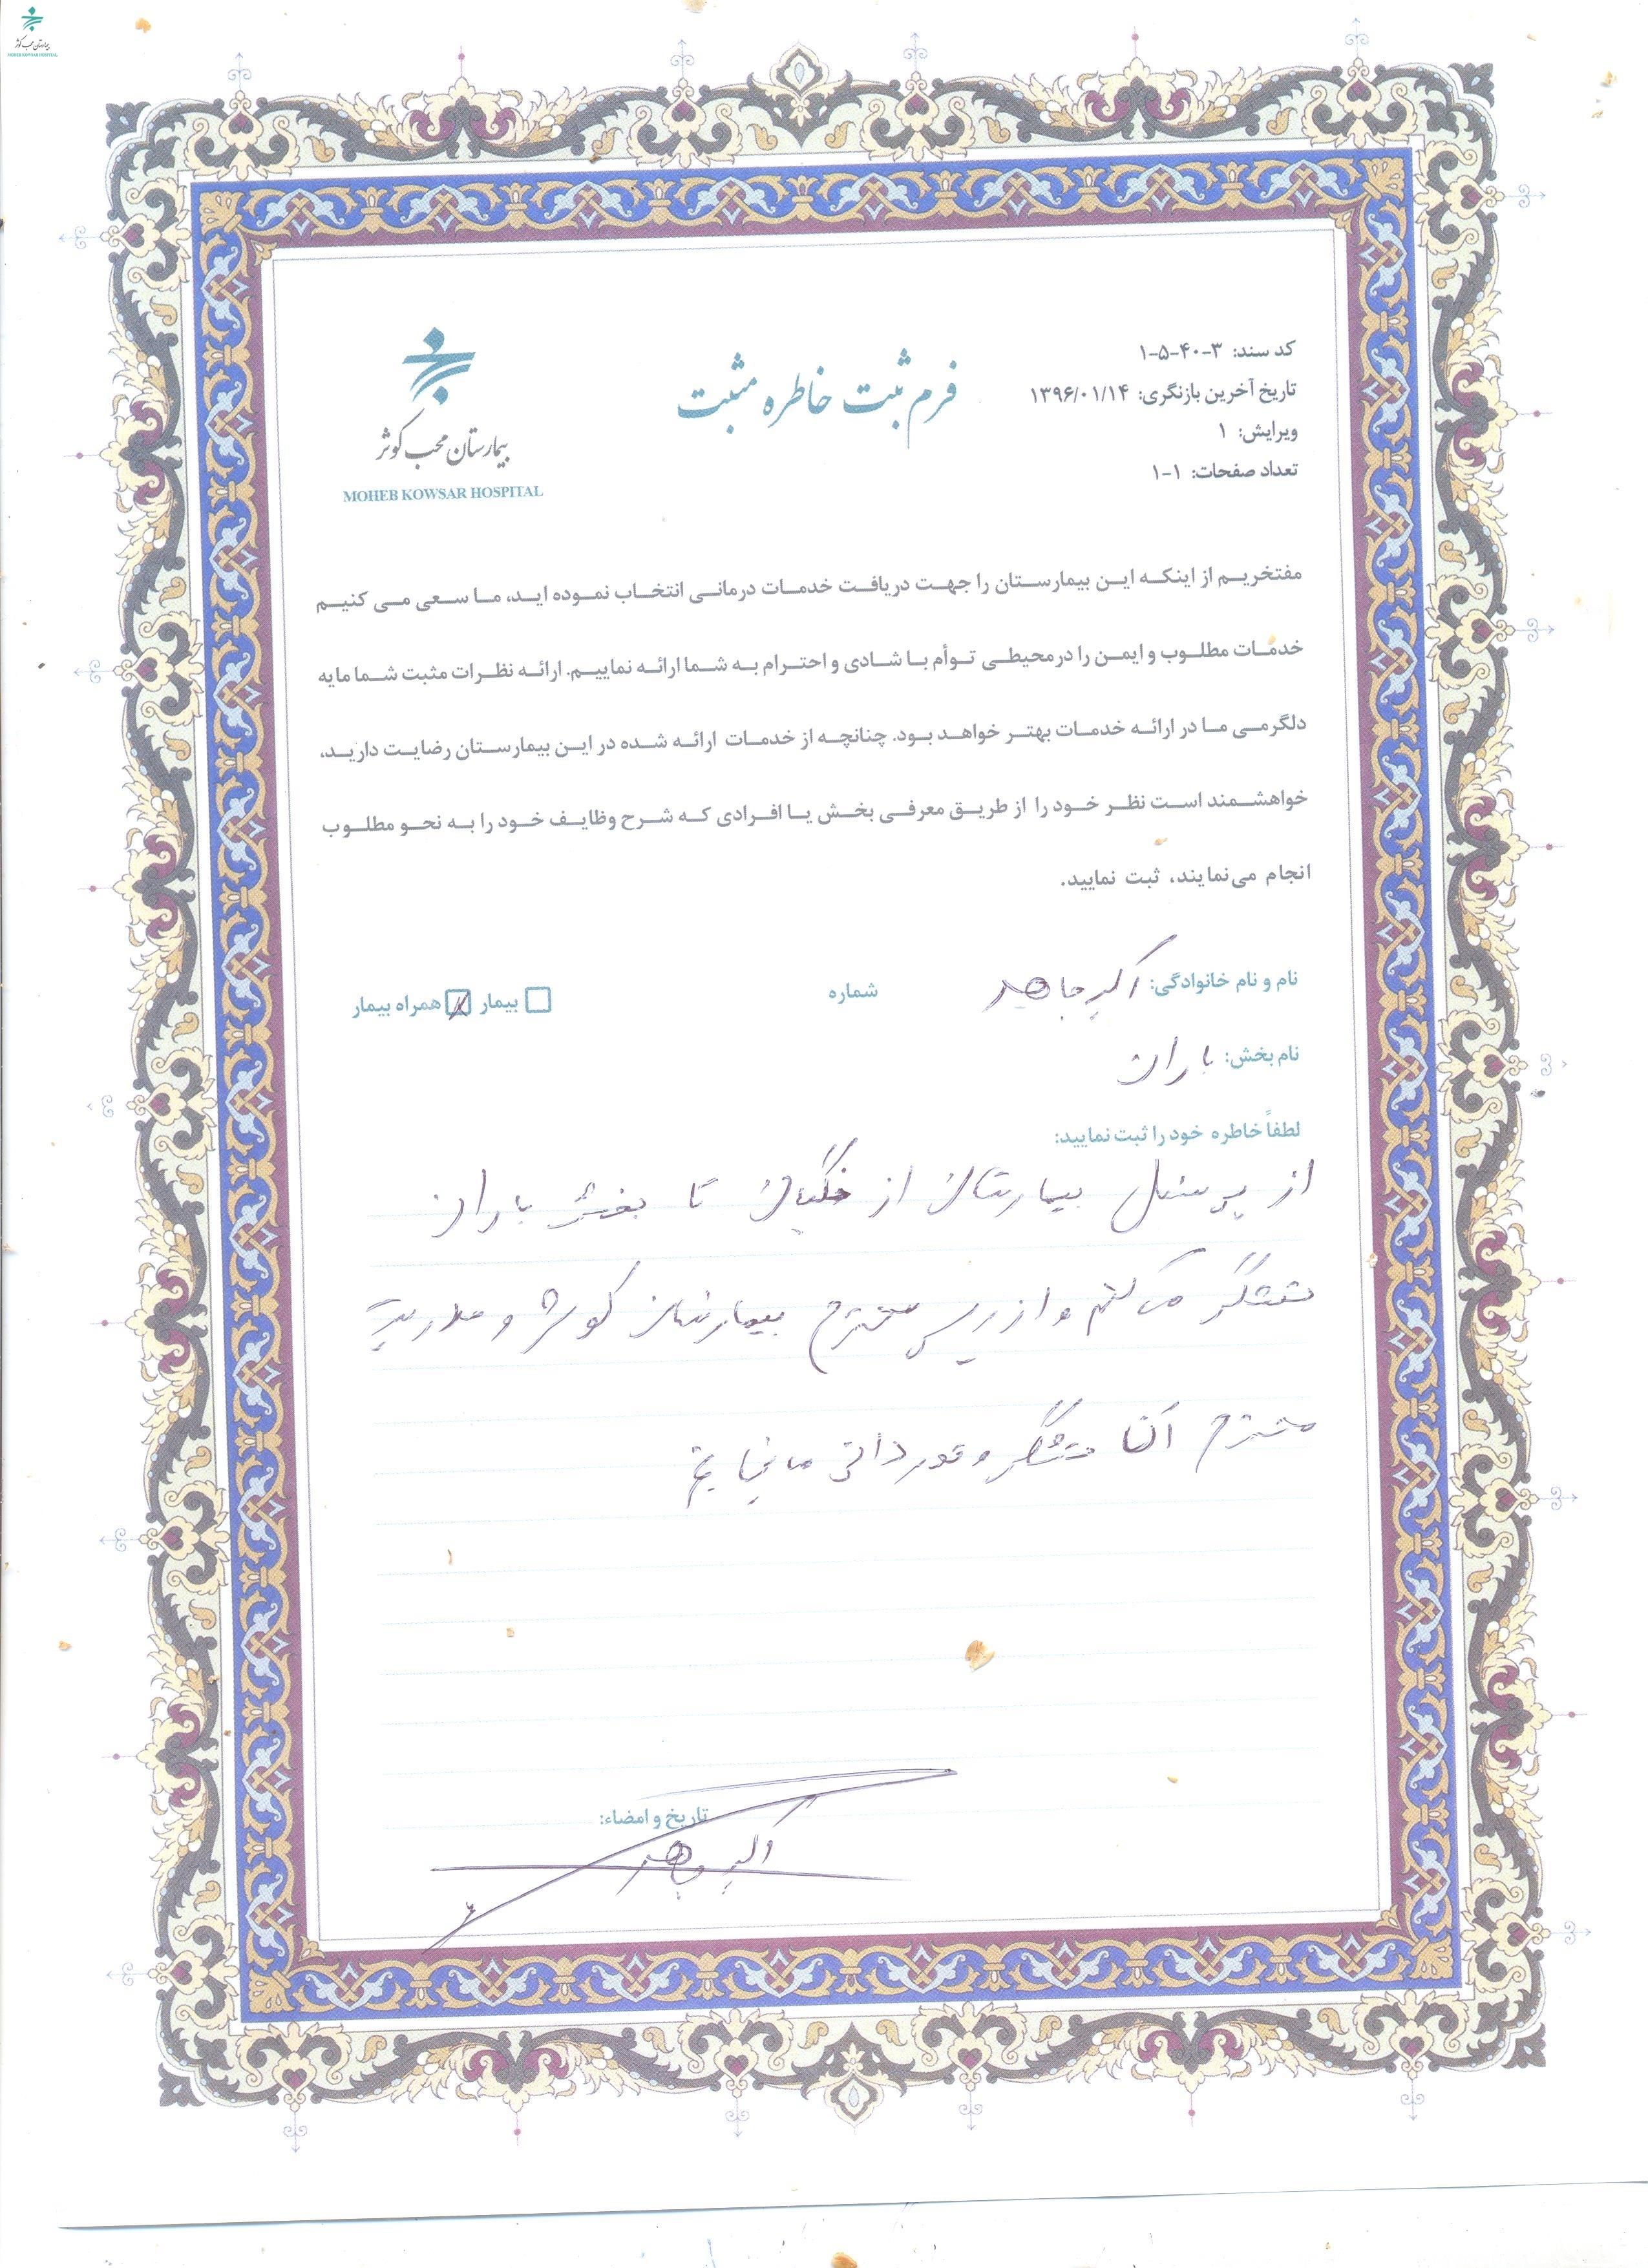 بیمارستان محب کوثر
MOHEB KOWSAR HOSPITAL
کد سند: ۳-۴۰-۵-۱
تاریخ آخرین بازنگری: ۱۳۹۶/۰۱/۱۴
ویرایش: ۱
تعداد صفحات: ۱-۱
فرم ثبت خاطره مثبت
بیمارستان محب کوثر
MOHEB KOWSAR HOSPITAL
مفتخریم از اینکه این بیمارستان را جهت دریافت خدمات درمانی انتخاب نموده اید، ما سعی می کنیم
خدمات مطلوب و ایمن را در محیطی توأم با شادی و احترام به شما ارائه نماییم. ارائه نظرات مثبت شما مایه
دلگرمی ما در ارائه خدمات بهتر خواهد بود. چنانچه از خدمات ارائه شده در این بیمارستان رضایت دارید،
خواهشمند است نظر خود را از طریق معرفی بخش یا افرادی که شرح وظایف خود را به نحو مطلوب
انجام می‌نمایند، ثبت نمایید.
نام و نام خانوادگی: اکبر جاهد شماره بیمار همراه بیمار
نام بخش: باران
لطفاً خاطره خود را ثبت نمایید:
از پرسنل بیمارستان از تا بخش باران
تشکر می کنم و از ریس محترم بیمارستان کوثر و مدیریت
محترم آن تشکر و قدردانی می نمایم
تاریخ و امضاء:
اکبر جاهد